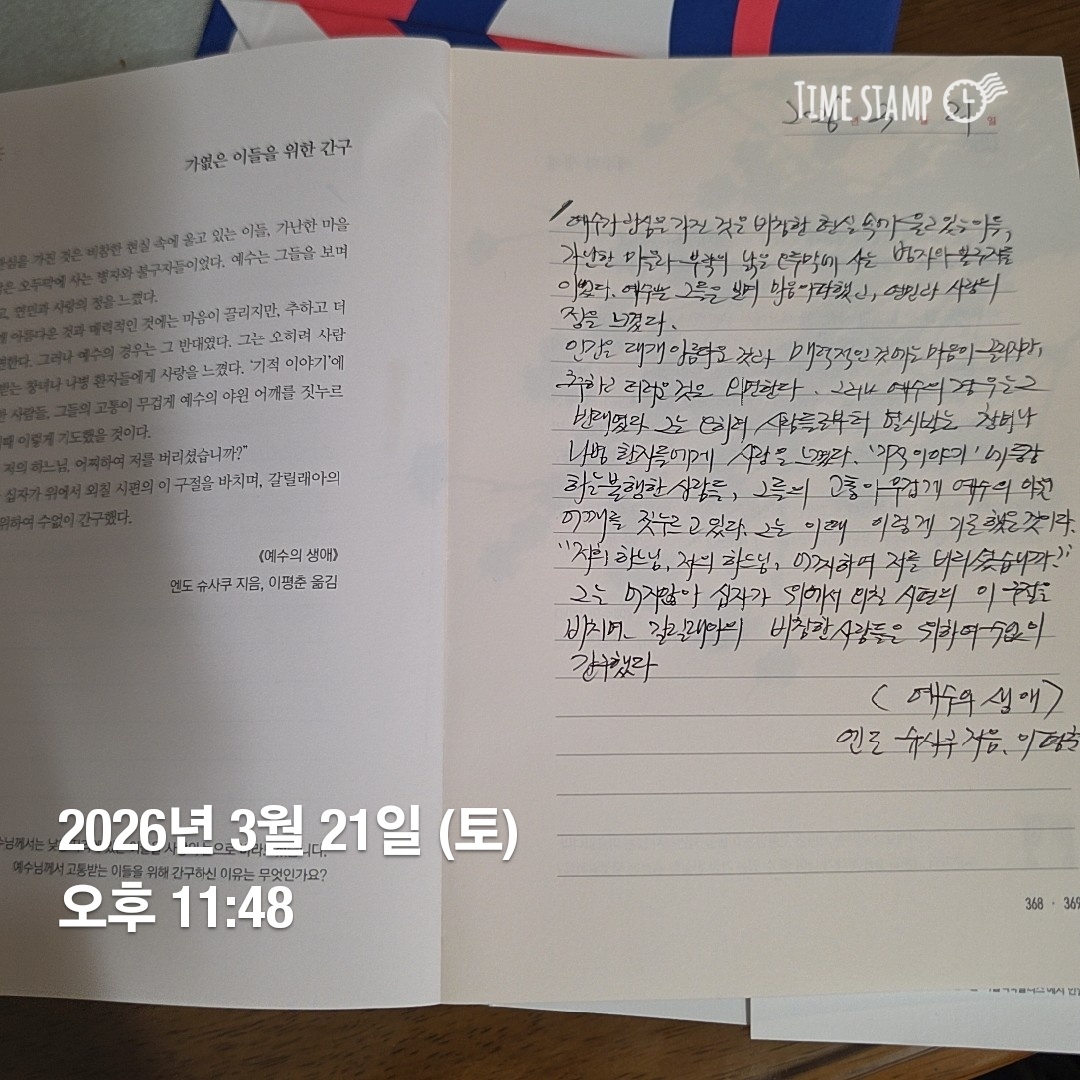 TIME STAMP
가엾은 이들을 위한 간구
관심을 가진 것은 비참한 현실 속에 울고 있는 이들, 가난한 마을
낡은 오두막에 사는 병자와 불구자들이었다. 예수는 그들을 보며
고, 연민과 사랑의 정을 느꼈다.
아름다운 것과 매력적인 것에는 마음이 끌리지만, 추하고 더
면한다. 그러나 예수의 경우는 그 반대였다. 그는 오히려 사람
받는 창녀나 나병 환자들에게 사랑을 느꼈다. ‘기적 이야기’에
한 사람들, 그들의 고통이 무겁게 예수의 야윈 어깨를 짓누르
이때 이렇게 기도했을 것이다.
저의 하느님, 어찌하여 저를 버리셨습니까?”
십자가 위에서 외칠 시편의 이 구절을 바치며, 갈릴래아의
위하여 수없이 간구했다.
《예수의 생애》
엔도 슈사쿠 지음, 이평춘 옮김
예수님께서 고통받는 이들을 위해 간구하신 이유는 무엇인가요?
2026년 3월 21일 (토)
오후 11:48
2026년 3월 21일
예수가 관심을 가진 것은 비참한 현실 속에 울고 있는 이들,
가난한 마을과 부락의 낡은 오두막에 사는 병자와 불구자들
이었다. 예수는 그들을 보며 마음아파했고, 연민과 사랑의
정을 느꼈다.
인간은 대개 아름다운 것과 매력적인 것에는 마음이 끌리지만,
추하고 더러운 것을 외면한다. 그러나 예수의 경우는 그
반대였다. 그는 오히려 사람들로부터 멸시받는 창녀나
나병 환자들에게 사랑을 느꼈다. '기적이야기'에 등장
하는 불행한 사람들, 그들의 고통이 무겁게 예수의 야윈
어깨를 짓누르고 있었다. 그는 이때 이렇게 기도했을 것이다.
"저의 하느님, 저의 하느님, 어찌하여 저를 버리셨습니까?"
그는 머지않아 십자가 위에서 외칠 시편의 이 구절을
바치며, 갈릴래아의 비참한 사람들을 위하여 수없이
간구했다
〈예수의 생애〉
엔도 슈사쿠 지음, 이평춘
368 · 369